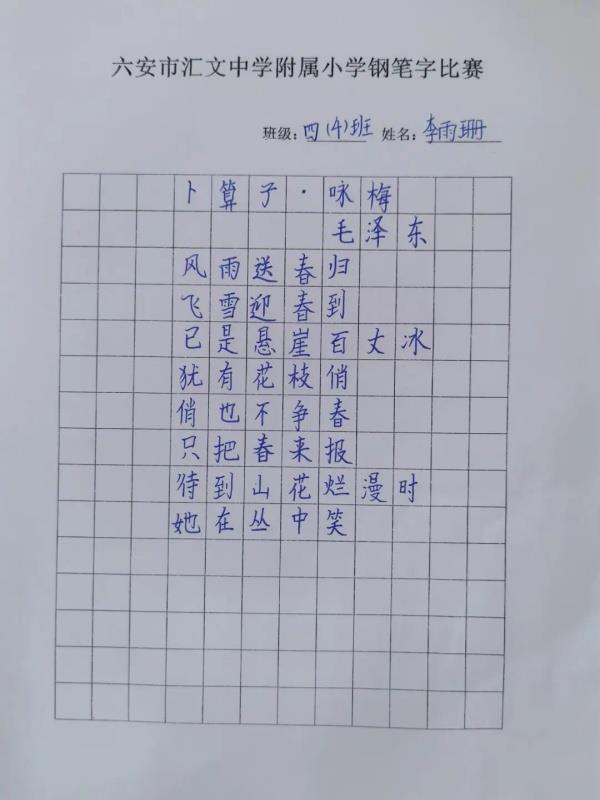 六安市汇文中学附属小学钢笔字比赛
班级:四(4)班 姓名:李雨珊
卜算子·咏梅
毛泽东
风雨送春归
飞雪迎春到
已是悬崖百丈冰
犹有花枝俏
俏也不争春
只把春来报
待到山花烂漫时
她在丛中笑